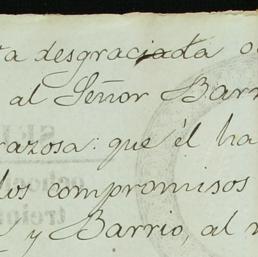 ta desgraciada o
al Señor Barr
razosa: que él ha
los compromisos
y Barrio, al